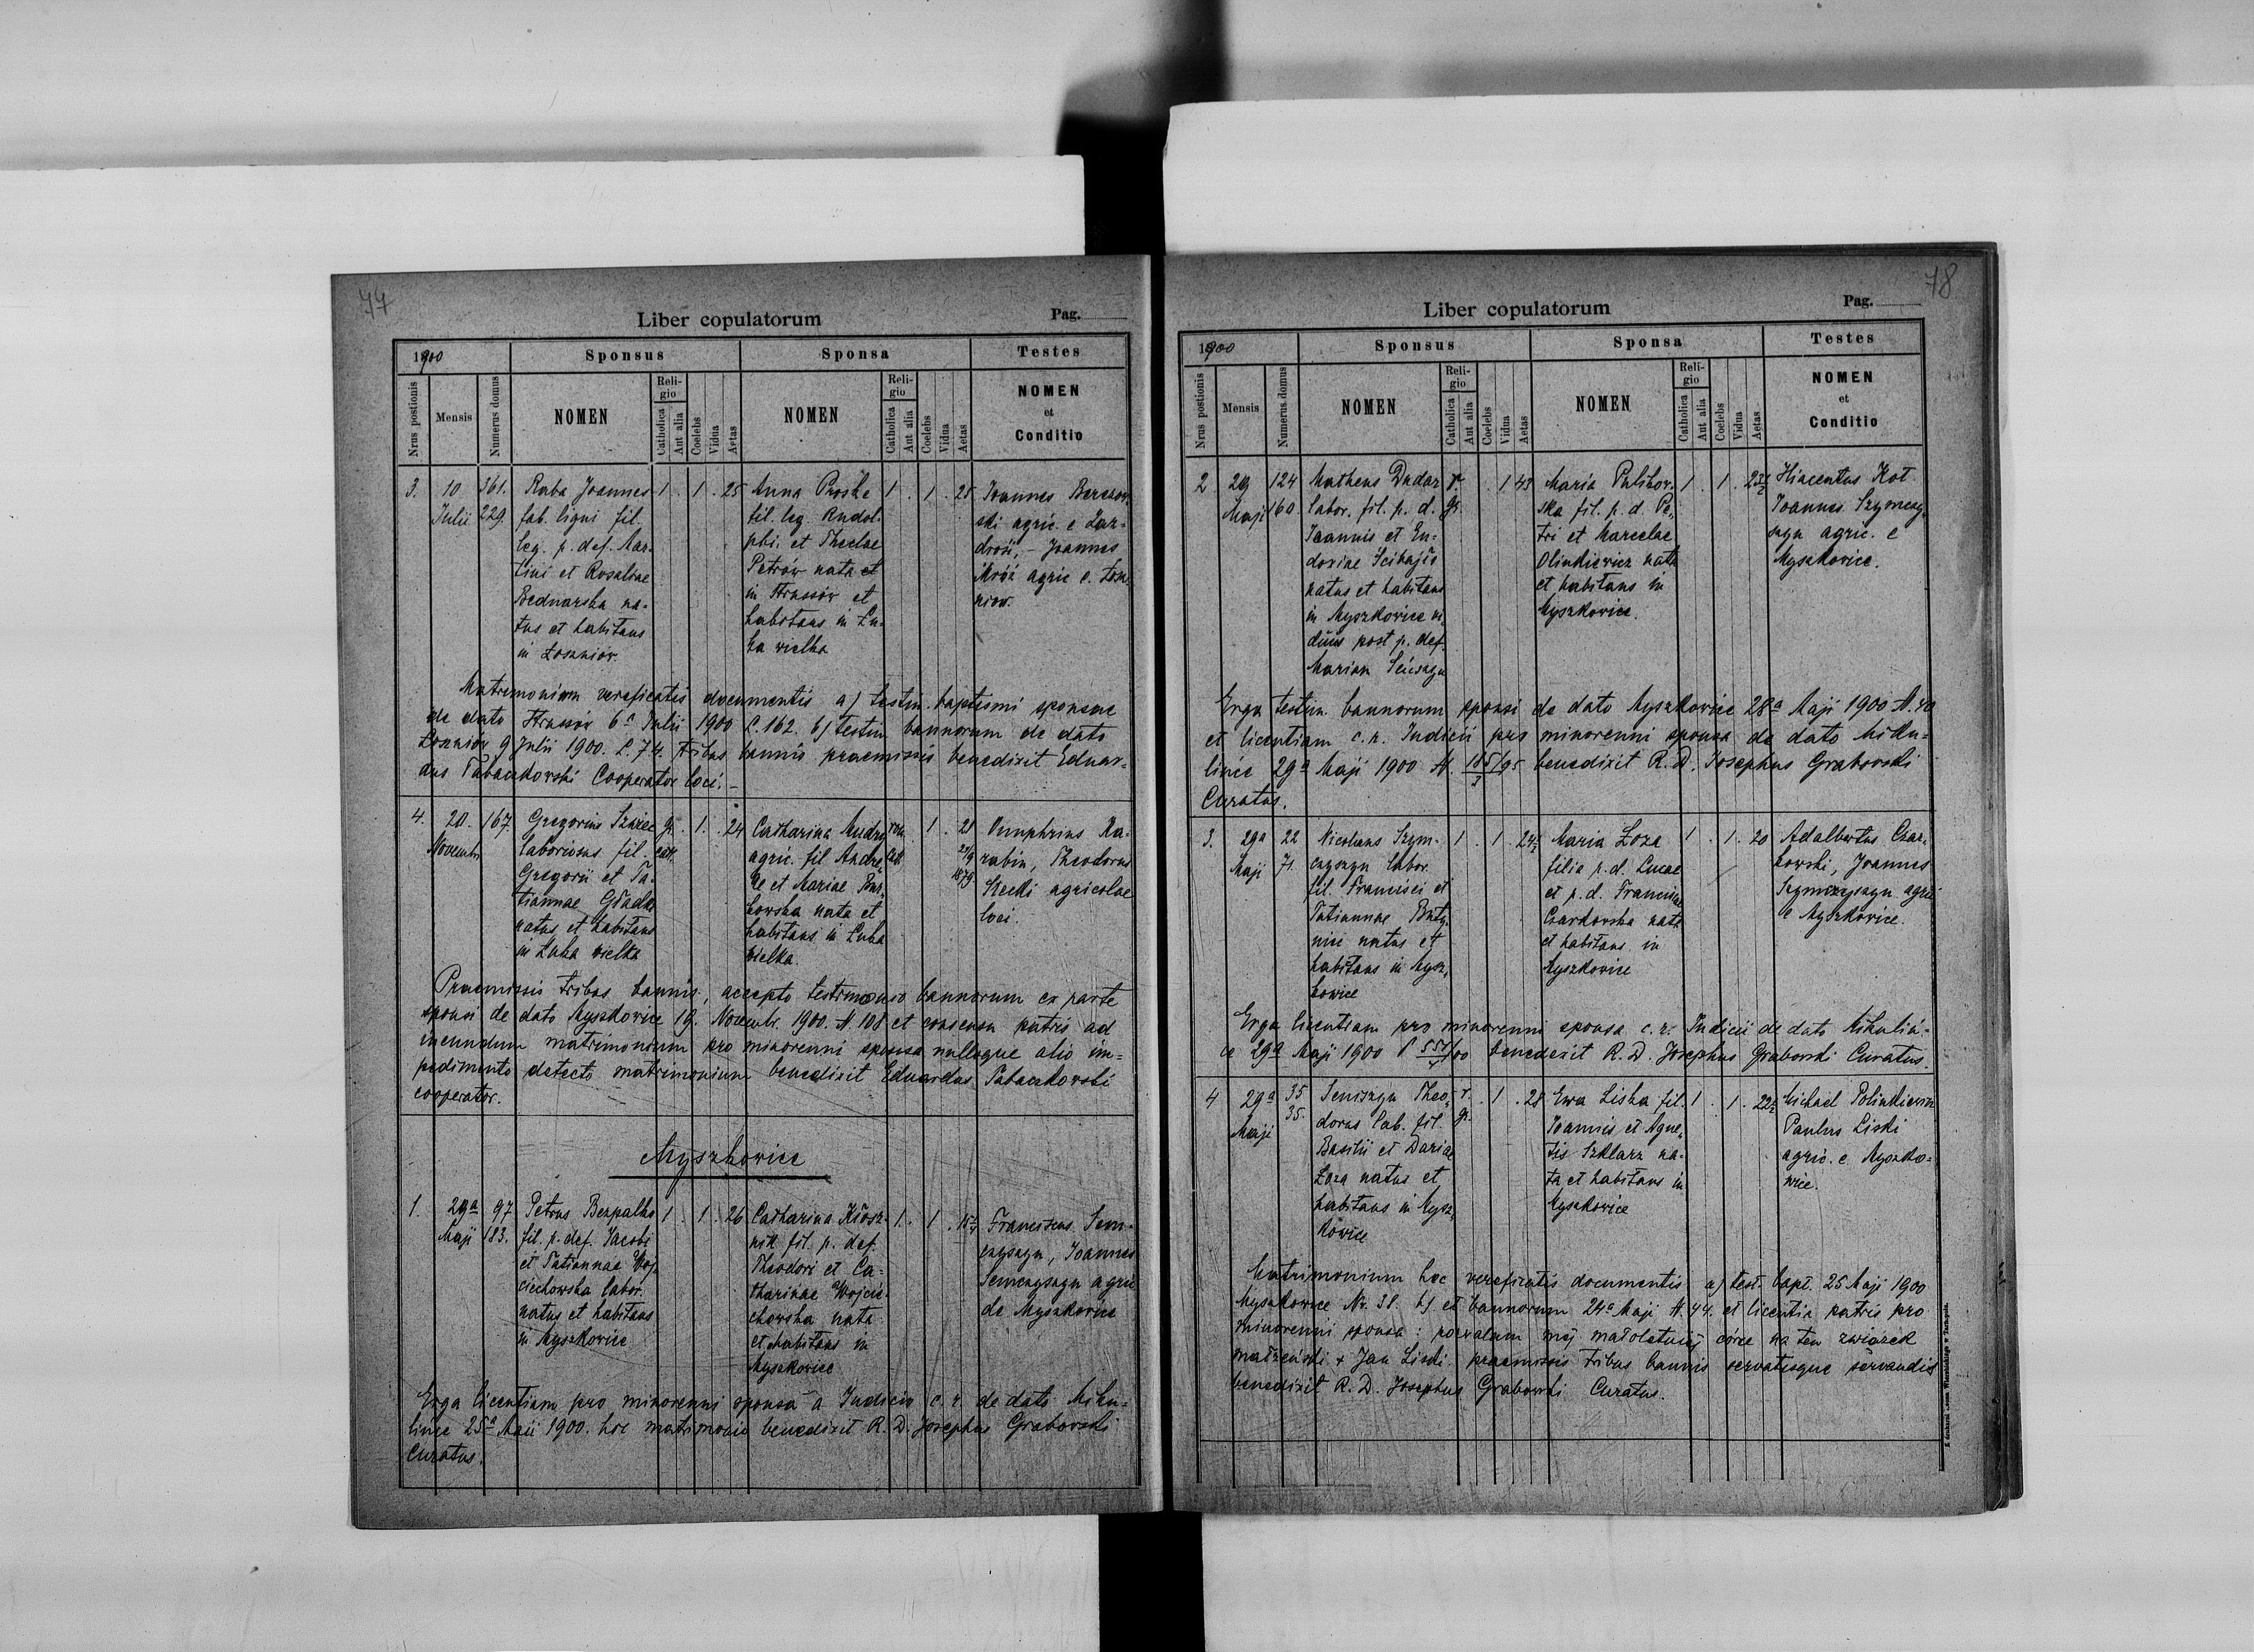 77
Liber copulatorum
Pag.
1900
Sponsus
Sponsa
Testes
Nrus postionis
Mensis
Numerus domus
NOMEN
Religio
Catholica
Aut alia
Coelebs
Vidua
Aetas
NOMEN
Religio
Catholica
Aut alia
Coelebs
Vidua
Aetas
NOMEN
et
Conditio
3.
10
Julii
361.
229.
Raba Joannes
fab. ligni fil.
leg. p. def. Mar-
tini et Rosaliae
Bednarska na-
tus et habitans
in Łoszniów.
1 . 1 . 25
Anna Proske
fil. leg. Rudol-
phi et Theclae
Petrów nata et
in Strussów et
habitans in Łu-
ka wielka
1 . 1 . 25
Joannes
ski agric. e Zaz-
drość, – Joannes
Mróz agric e. Łosz
niow.
Matrimonium verificatis documentis a) testim. baptismi sponsae
de dato Strussów 6 Julii 1900 L. 162. b) testim bannorum de dato
Łoszniów 9 Julii 1900. L. 74. tribus bannis praemissis benedixit Eduar-
dus Tabaczkowski Cooperator loci. –
4.
20.
Novembr
167
Gregorius
laboriosus fil.
Gregorii et Ta-
tiannae Gładka
natus et habitans
in Łuka wielka
gr.
cath.
. 1. . 24
Catharina Mudra
agric. fil Andre
ae et Mariae Bur
kowska nata et
habitans in Łuka
wielka.
rom.
Cath.
1 . 21
27/9
1879
Onuphrius Ka-
rabin, Theodorus
Stecki agricolae
loci.
Praemissis tribus bannis, accepto testimonio bannorum ex parte
sponsi de dato Myszkowice 19. Novembr. 1900. N. 108 et consensu patris ad
ineundum matrimonium pro minorenni sponsa nulloque alio im-
pedimento detecto matrimonium benedixit Eduardus Tabaczkowski
cooperator.
Myszkowice
1.
29a
Maji
97
183.
Petrus Bezpalko
fil. p. def. Jacobi
et Tatiannae Woj
ciechowska labor.
natus et habitans
in Myszkowice
1 . 1 . 26
Catharina Kłosz-
nik fil. p. def.
Theodori et Ca-
tharinae Wojcie-
chowska nata
et habitans in
Myszkowice
1. . 1 .
Franciscus Sem-
czyszyn, Joannes
Semczyszyn agric
de Myszkowice
Erga licentiam pro minorenni sponsa a Judicio c. r. de dato Miku-
lince 25a Maii 1900. hoc matrimonio benedixit R. D. Josephus Grabowski
Curatus.
78
Liber copulatorum
Pag.
1900
Sponsus
Sponsa
Testes
Nrus postionis
Mensis
Numerus domus
NOMEN
Religio
Catholica
Aut alia
Coelebs
Vidua
Aetas
NOMEN
Religio
Catholica
Aut alia
Coelebs
Vidua
Aetas
NOMEN
et
Conditio
2
29
Maji
124
160
Matheus Dudar
labor. fil. p. d.
Joannis et Eu-
doxiae
natus et habitans
in Myszkowice vi
duus post p. def.
Mariam
r.
gr.
. 1 43
Maria
ska fil. p. d. Pe-
tri et Marcelae
Olinkiewicz nata
et habitans in
Myszkowice.
1 . 1 .
Hiacentus Kot
Joannes Szymczy
szyn agric. e
Myszkowice.
Erga testim. bannorum sponsi de dato Myszkowice 28a Maji 1900 N. 40
et licentiam c. r. Judicii pro minorenni sponsa de dato Miku-
lince 29a Maji 1900 N. benedixit R. D. Josephus Grabowski
Curatus.
3.
29a
Maji
22
71
Nicolaus Szym-
czyszyn labor.
fil. Francisci et
Tatiannae Buty-
nici natus et
habitans in Mysz-
kowice
1 . 1 . 24½
Maria Łoza
filia p. d. Lucae
et p. d. Franciscae
Czarkowska nata
et habitans in
Myszkowice
1 . 1 . 20
Adalbertus Czar-
kowski, Joannes
Szymczyszyn agric
e Myszkowice.
Erga licentiam pro minorenni sponsa c. r. Judicii de dato Mikulin-
ce 29a Maji 1900 benedixit R. D. Josephus Grabowski Curatus.
4
29a
Maji
35
35.
Semczyszyn Theo-
dorus lab. fil.
Basilii et Dariae
Łoza natus et
habitans in Mysz-
kowice
r.
gr.
. 1 . 28
Ewa Liska fil.
Joannis et Agne-
tis Szklarz na-
ta et habitans in
Myszkowice
1 . 1 . 22½
Michael Polinkiewicz
Paulus Liski
agric. e Myszko-
wice.
Matrimonium hoc verificatis documentis a) test. bapt. 25 Maji 1900
Myszkowice Nr. 38. b) et bannorum 24a Maji N. 44. et licentia patris pro
minorenni sponsa: pozwalam mej małoletniej córce na ten związek
małżeński + Jan Liski. praemissis tribus bannis servatisque servandis
benedixit R. D. Josephus Grabowski Curatus.